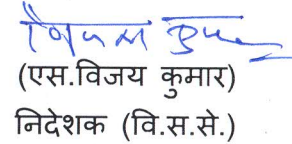 (एस.विजय कुमार)
निदेशक (वि.स.से.)